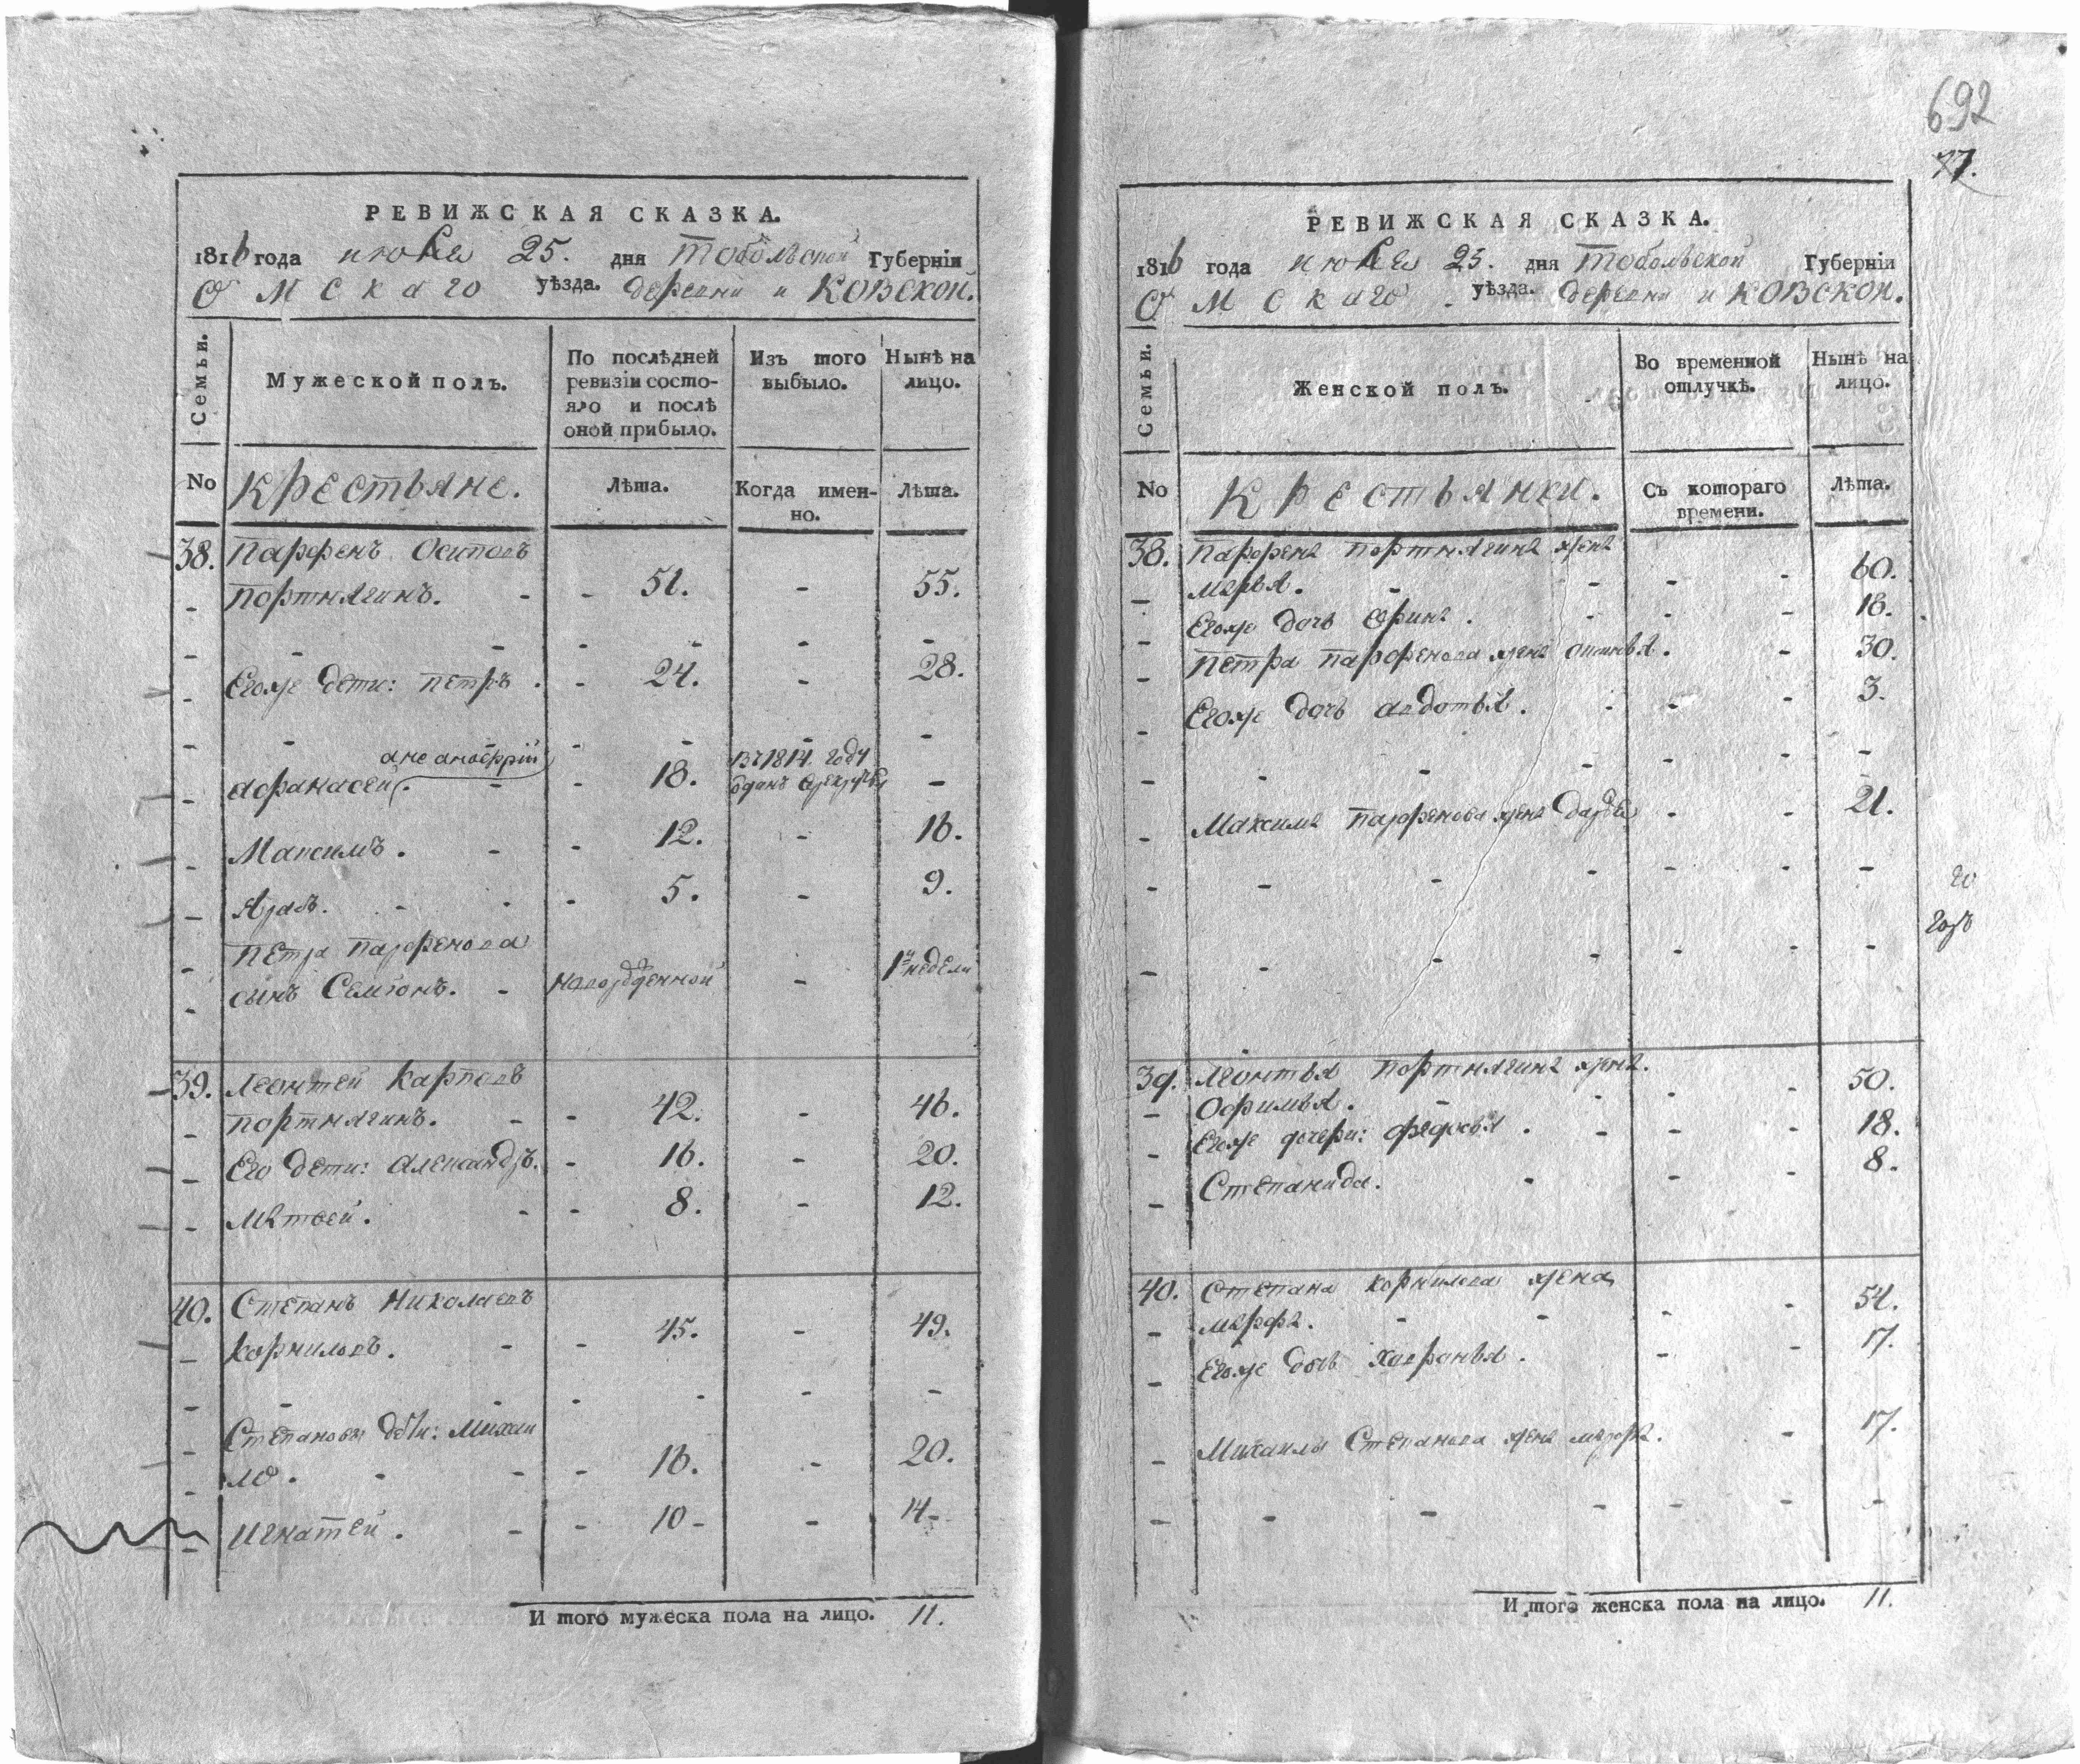 РЕВИЖСКАЯ СКАЗКА.
1816 года июля 25. дня Тобольской Губерніи
Омскаго уѣзда. деревни иковской.
Семьи.
Мужеской полъ.
По послѣдней ревизіи состояло и послѣ оной прибыло.
Изъ того выбыло.
Нынѣ на лицо.
No
Крестьяне.
Лѣта.
Когда именно.
Лѣта.
38. Парфенъ Осиповъ
Портнягинъ. - - 51. - 55.
Егоже дети: Петръ. - 24. - 28.
а не анофрій
Афанасей. - 18. въ 1814. году отданъ в рекруты -
Максимъ. - - 12. - 16.
- - 5. - 9.
Петра Парфенова
сынъ Семіонъ. - новорожденной - 1 недели
39. Леонтей Карповъ
Портнягинъ. - - 42. - 46.
Его дети: Александръ. - 16. - 20.
Матвей. - - 8. - 12.
40. Степанъ Николаевъ
Корниловъ. - - 45. - 49.
Степановы дѣти: Михаи
ло. - - - 16. - 20.
Игнатей. - - 10 - - 14 -
И того мужеска пола на лицо. 11.
692
77.
РЕВИЖСКАЯ СКАЗКА.
1816 года июля 25. дня Тобольской Губерніи
Омскаго уѣзда. деревни иковской.
Семьи.
Женской полъ.
Во временной отлучкѣ.
Нынѣ на лицо.
No
Крестьянки.
Съ котораго времени.
Лѣта.
38. Парфена Портнягина жена
Марья. - - - - 60.
Егоже дочь Ирина. - - - 16.
Петра Парфенова жена . - 30.
Егоже дочь Авдотья. - - - 3.
Максима Парфенова жена Дарья . - 21.
го
годъ
39. Леонтья Портнягина жена.
Офимья. - - - - 50.
Егоже дочери: Федосья . - - - 18.
Степанида. - - - 8.
40. Степана Корнилова жена
Марфа. - - - - 54.
Егоже дочь Хавронья. - - 17.
Михаилы Степанова жена Марфа. - 17.
И того женска пола на лицо. 11.